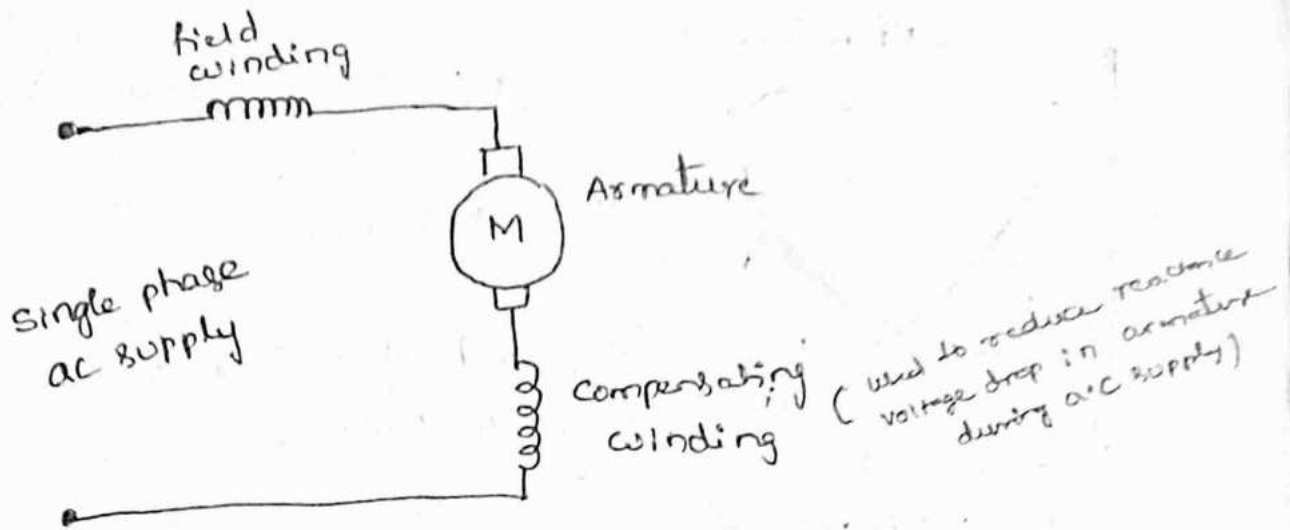 field
winding
Armature
M
single phase
ac supply
compensating
winding
( used to reduce reactance
voltage drop in armature
during a.c supply)